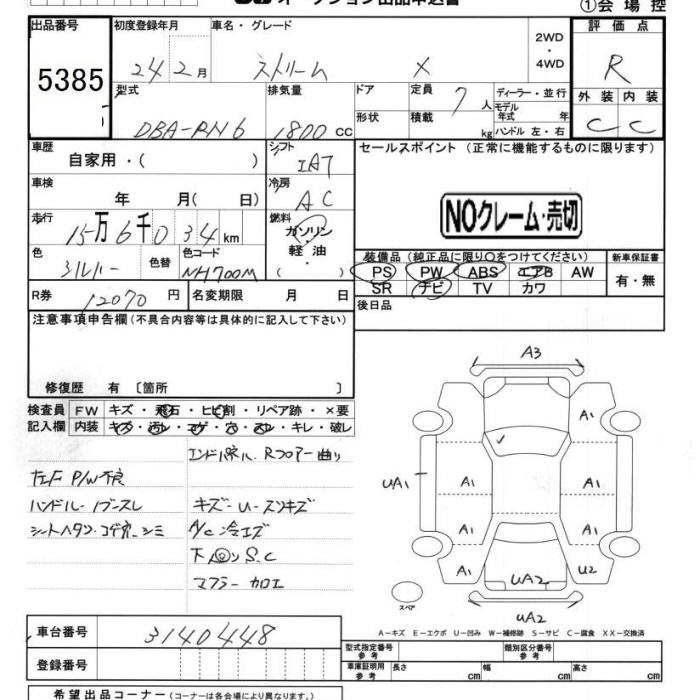 オークション出品申込書 ①会場控
出品番号 初度登録年月 車名・グレード 評価点
5385 24 2月 ストリーム X 2WD・4WD R
型式 排気量 ドア 定員 7人 ディーラー・並行 外装 内装
DBA-RN6 1800cc 形状 積載 kg モデル年式 年 C C
ハンドル 左・右
車歴 自家用・( ) シフト IAT セールスポイント (正常に機能するものに限ります)
車検 年 月( 日) 冷房 AC
NOクレーム・売切
走行 15万6千034km 燃料 ガソリン・軽油( )
装備品(純正品に限り○をつけてください) 新車保証書
色 シルバー 色替 色コード NH700M PS PW ABS エアB AW 有・無
SR ナビ TV カワ
R券 12070円 名変期限 月 日 後日品
注意事項申告欄(不具合内容等は具体的に記入して下さい)
修復歴 有 〔箇所 〕
検査員 FW キズ・飛石・ヒビ割・リペア跡・×要
記入欄 内装 キズ・汚レ・コゲ・穴・スレ・キレ・破レ
エンドパネル、Rフロアー曲り
左F P/W不良
ハンドル・ノブスレ キズ・U・スリキズ
シートヘタリ・コゲ穴・シミ A/C冷エズ
下回りS、C
マフラー加工
A3
A1
UA1 A1 A1
A1 A1
A1 UA2 U2
スペア UA2
A-キズ E-エクボ U-凹み W-補修跡 S-サビ C-腐食 XX-交換済
車台番号 3140448
型式指定番号 参考 類別区分番号 参考
登録番号 車庫証明用 参考 長さ cm 幅 cm 高さ cm
希望出品コーナー(コーナーは各会場により異なります。)